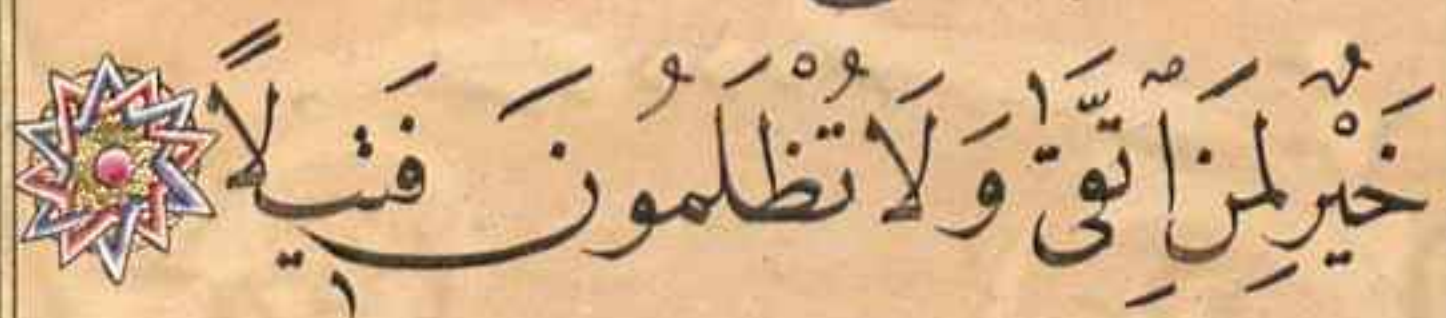 خَيْرٌ لِمَنِ ٱتَّقٰى وَلَا تُظْلَمُونَ فَتٖيلًا